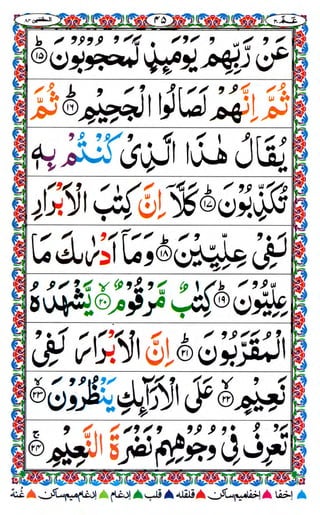 عَمَّ ٣٠ ٤٥ المطففين ٨٣
عَنْ رَّبِّهِمْ يَوْمَئِذٍ لَّمَحْجُوْبُوْنَ ۝١٥
ثُمَّ اِنَّهُمْ لَصَالُوا الْجَحِيْمِ ۝١٦ ثُمَّ
يُقَالُ هٰذَا الَّذِىْ كُنْتُمْ بِهٖ
تُكَذِّبُوْنَ ۝١٧ كَلَّاۤ اِنَّ كِتٰبَ الْاَبْرَارِ
لَفِىْ عِلِّيِّيْنَ ۝١٨ وَمَاۤ اَدْرٰىكَ مَا
عِلِّيُّوْنَ ۝١٩ كِتٰبٌ مَّرْقُوْمٌ ۙ۝٢٠ يَّشْهَدُهُ
الْمُقَرَّبُوْنَ ۝٢١ اِنَّ الْاَبْرَارَ لَفِىْ
نَعِيْمٍ ۙ۝٢٢ عَلَى الْاَرَآئِكِ يَنْظُرُوْنَ ۙ۝٢٣
تَعْرِفُ فِىْ وُجُوْهِهِمْ نَضْرَةَ النَّعِيْمِ ۚ۝٢٤
اِخفا اِخفامیم ساکن قلقله قلب اِدغام اِدغام میم ساکن غُنة